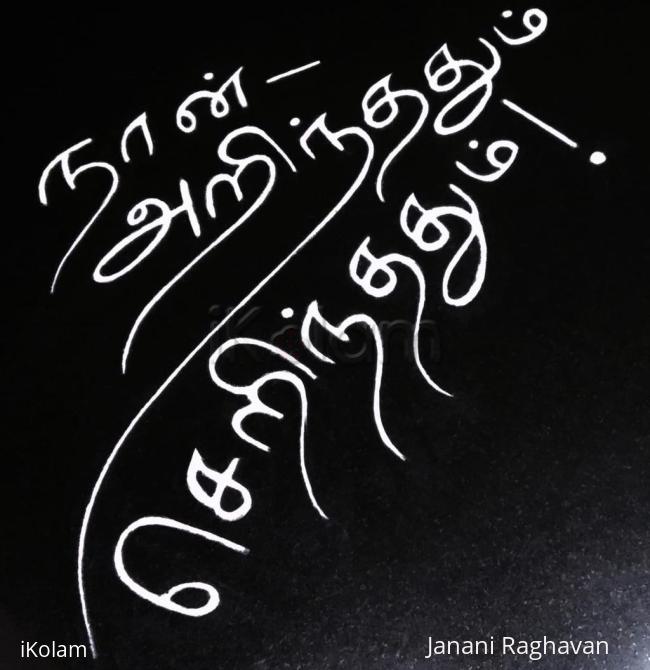 நான் –
அறிந்ததும்
செறிந்ததும் – .
iKolam
iKolam
Janani Raghavan